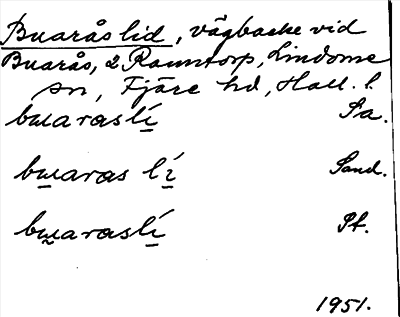 Buarås lid, vägbacke vid
Buarås, 2 Ramntorp, Lindome
sn, Fjäre hd, Hall. l.
bɯaraslí Sa.
bɯaras lí Sand.
bɯaraslí Pt.
1951.